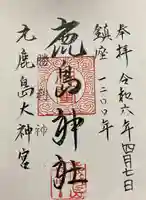 奉拝 令和六年四月七日
鎮座一二〇〇年
鹿島神社
勝利神
元鹿島大神宮